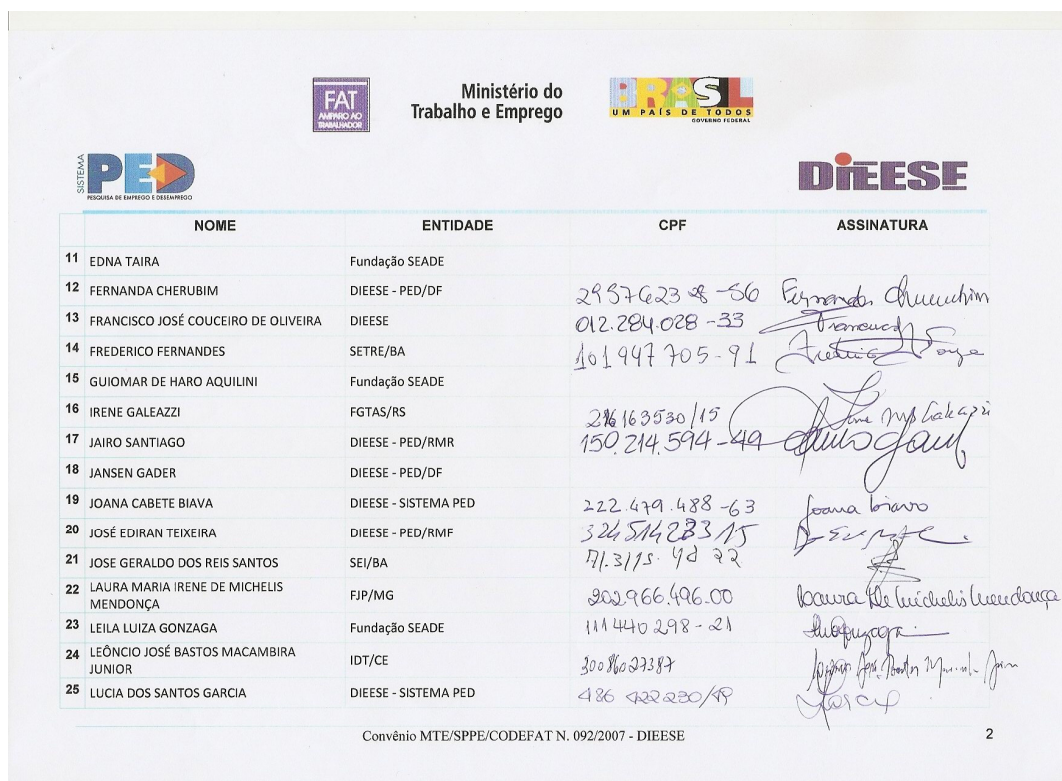 FAT
AMPARO AO
TRABALHADOR
Ministério do
Trabalho e Emprego
BRASIL
UM PAÍS DE TODOS
GOVERNO FEDERAL
SISTEMA
PED
PESQUISA DE EMPREGO E DESEMPREGO
DIEESE
NOME ENTIDADE CPF ASSINATURA
11 EDNA TAIRA Fundação SEADE
12 FERNANDA CHERUBIM DIEESE - PED/DF Fernanda Cherubim
13 FRANCISCO JOSÉ COUCEIRO DE OLIVEIRA DIEESE 012.284.028-33 Francisco
14 FREDERICO FERNANDES SETRE/BA 101947705-91
15 GUIOMAR DE HARO AQUILINI Fundação SEADE
16 IRENE GALEAZZI FGTAS/RS Irene Mp Galeazzi
17 JAIRO SANTIAGO DIEESE - PED/RMR 150.214.594-49
18 JANSEN GADER DIEESE - PED/DF
19 JOANA CABETE BIAVA DIEESE - SISTEMA PED 222.479.488-63 Joana Biava
20 JOSÉ EDIRAN TEIXEIRA DIEESE - PED/RMF
21 JOSE GERALDO DOS REIS SANTOS SEI/BA
22 LAURA MARIA IRENE DE MICHELIS
MENDONÇA FJP/MG 202.966.496.00 Laura De Michelis Mendonça
23 LEILA LUIZA GONZAGA Fundação SEADE 111440298-21
24 LEÔNCIO JOSÉ BASTOS MACAMBIRA
JUNIOR IDT/CE 30086027387
25 LUCIA DOS SANTOS GARCIA DIEESE - SISTEMA PED Garcia
Convênio MTE/SPPE/CODEFAT N. 092/2007 - DIEESE 2